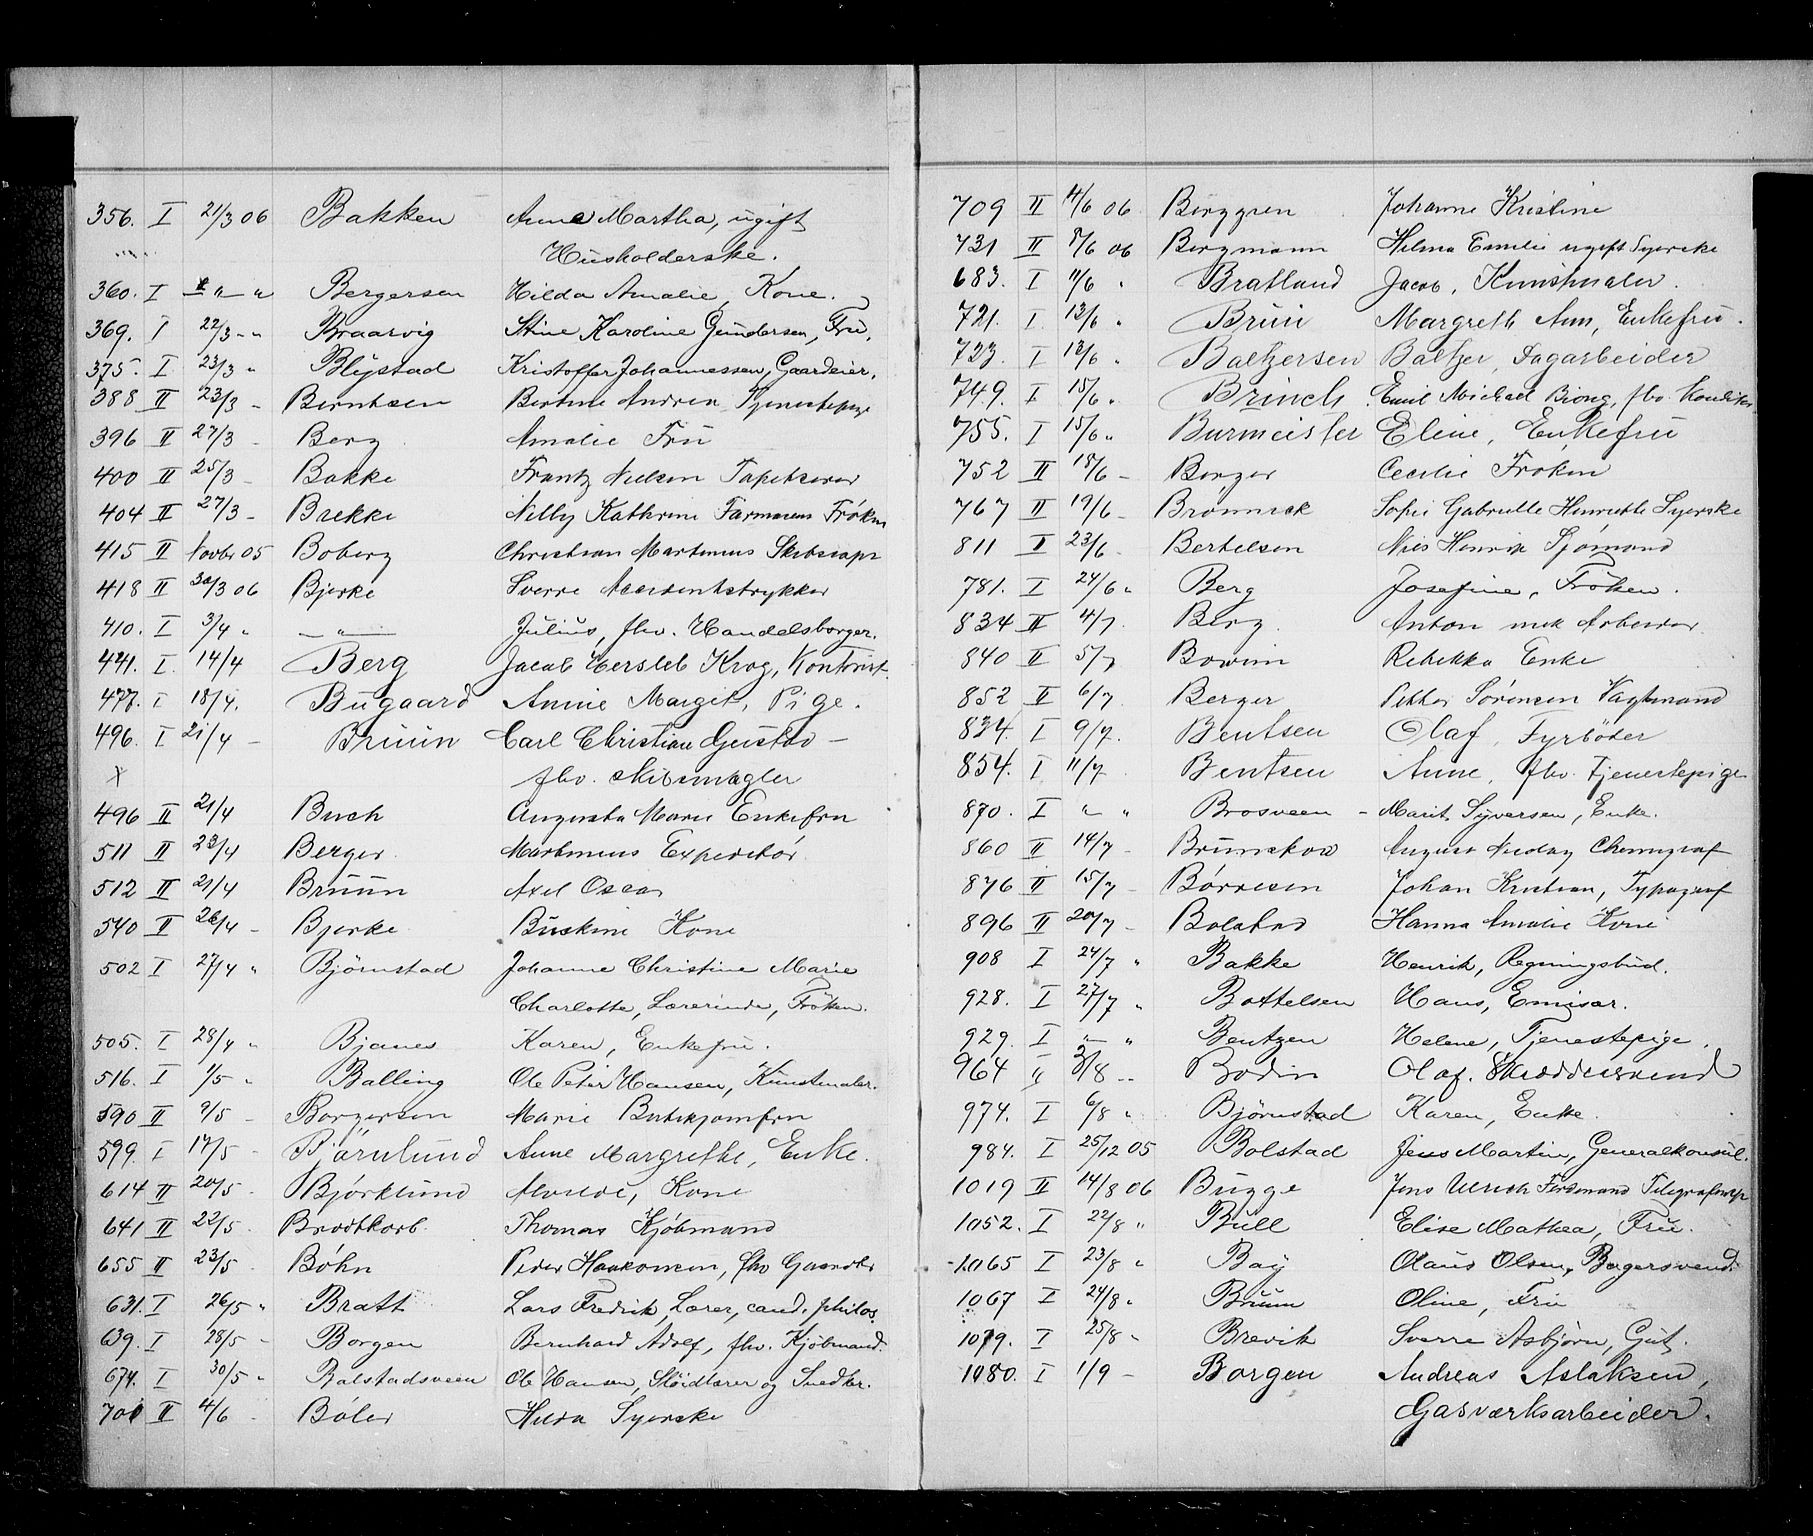 356. I 21/3 06 Bakken Anne Martha, ugift
Husholderske.
360. I — " — " Bergersen Hilda Amalie, Kone.
369. I 22/3 - " Braarvig Stine Karoline Gundersen, Fru.
375. I 23/3 " Blystad Kristoffer Johannessen, Gaardeier.
388 II 23/3 - Berntsen Bertine Andrea Tjenestepige
396 II 27/3 - Berg Amalie Frü
400 II 25/3 - Bakke Frantz Nielsen Tapetserer
404 II 27/3 - Brekke Nilly Kathrine Frøken
415 II Novbr 05 Boberg Christian Martinius
418 II 30/3 06 Bjerke Sverre Accidentstrykker
410. I 3/4 " — " — Julius, fhv. Handelsborger.
441. I. 14/4 Berg Jacob Hersleb Krog, Kontorist.
477. I 18/4. Bugaard Anine Margit, Pige.
496. I 21/4 - Bruun Carl Christian Gustav —
X fhv. skibsmægler
496 II 21/4 Buch Augusta Marie Enkefru
511 II 23/4 Berger Martinius Expeditør
512 II 21/4 Bruun Axel Oscar
540 II 26/4 - Bjerke Kone
502 I 27/4 " Bjørnstad Johanne Christine Marie
Charlotte, Lærerinde, Frøken.
505. I 28/4 " Bjanes Karen, Enkefru.
516. I 1/5 " Balling Ole Peter Hansen, Kunstmaler.
590 II 9/5 - Borgersen Marie Butikjomfru
599. I 17/5 - Bjørnlund Anne Margrethe, Enke.
614 II 20/5 - Bjørklund Kone
641 II 22/5 - Brodtkorb. Thomas Kjøbmand
655 II 23/5 - Bøhn Peder Haakonsen, fhv
631. I 26/5 " Bratt Lars Fredrik, Lærer, cand. philos
639. I 28/5 - Borgen Bernhard Adolf, fhv. Kjøbmand.
674. I 30/5 " Balstadsveen Ole Hansen, Sløidlærer og Snedker.
701 II 4/6 - Bøler Hilda Syerske
709 II 4/6 06 Berggren Johanne Kristine
731 II 8/6 06 Bergmann Hilma Emilie ugift Syerske
683. I 11/6 " Bratland Jacob, Kunstmaler.
721. I 13/6 " Brün Margreth Ann, Enkefru.
723. I 13/6 " Baltzersen Baltzer, Dagarbeider
749. I 15/6 " Brinch Emil Michael Biong, fhv. Konditor
755. I 15/6 " Burmeister Eline, Enkefrü
752 II 18/6 - Berger Cecilie Frøken
767 II 19/6 - Sofie Gabrielle Henriette Syerske
811 I 23/6 - Bertelsen Niels Henrik Sjømand
781. I 24/6 " Berg Josefine, Frøken.
834 II 4/7 Berg Anton mek Arbeider
840 II 5/7 Rebekka Enke
852 II 6/7 Berger Petter Sørensen Vagtmand
834. I 9/7. Bentsen Olaf, Fyrbøder
854. I 11/7 Bentsen Anne, fhv. Tjenestepige
870. I " " Brosveen - Marit Syversen, Enke.
860 II 14/7 - Brunskow August Nicolay Chemigraf
876 II 15/7 - Børresen Johan Kristian, Typograf
896 II 20/7 - Bolstad Hanna Amalie Kone
908 I 24/7 " Bakke Henrik, Regningsbud.
928. I 27/7 " Bottelsen Hans, Emisær.
929. I — " Bentzen Helene, Tjenestepige.
964 II 3/8 - Bodin Olaf. Skræddersvend
974. I 6/8 " Bjørnstad Karen, Enke.
984. I 25/12 05 Bolstad Jens Martin, Generalkonsul.
1019 II 14/8 06 Bugge Jens Ulrich Ferdinand
1052. I 22/8 " Bull Elise Mathea, Fru.
1065 I 23/8 " Bay Olaus Olsen, Bagersvend.
1067 I 24/8 " Bruun Oline, Fru
1079. I 25/8 " Brevik Sverre Asbjørn, Gut.
1080. I 1/9 - Borgen Andreas Aslaksen,
Gasværksarbeider.